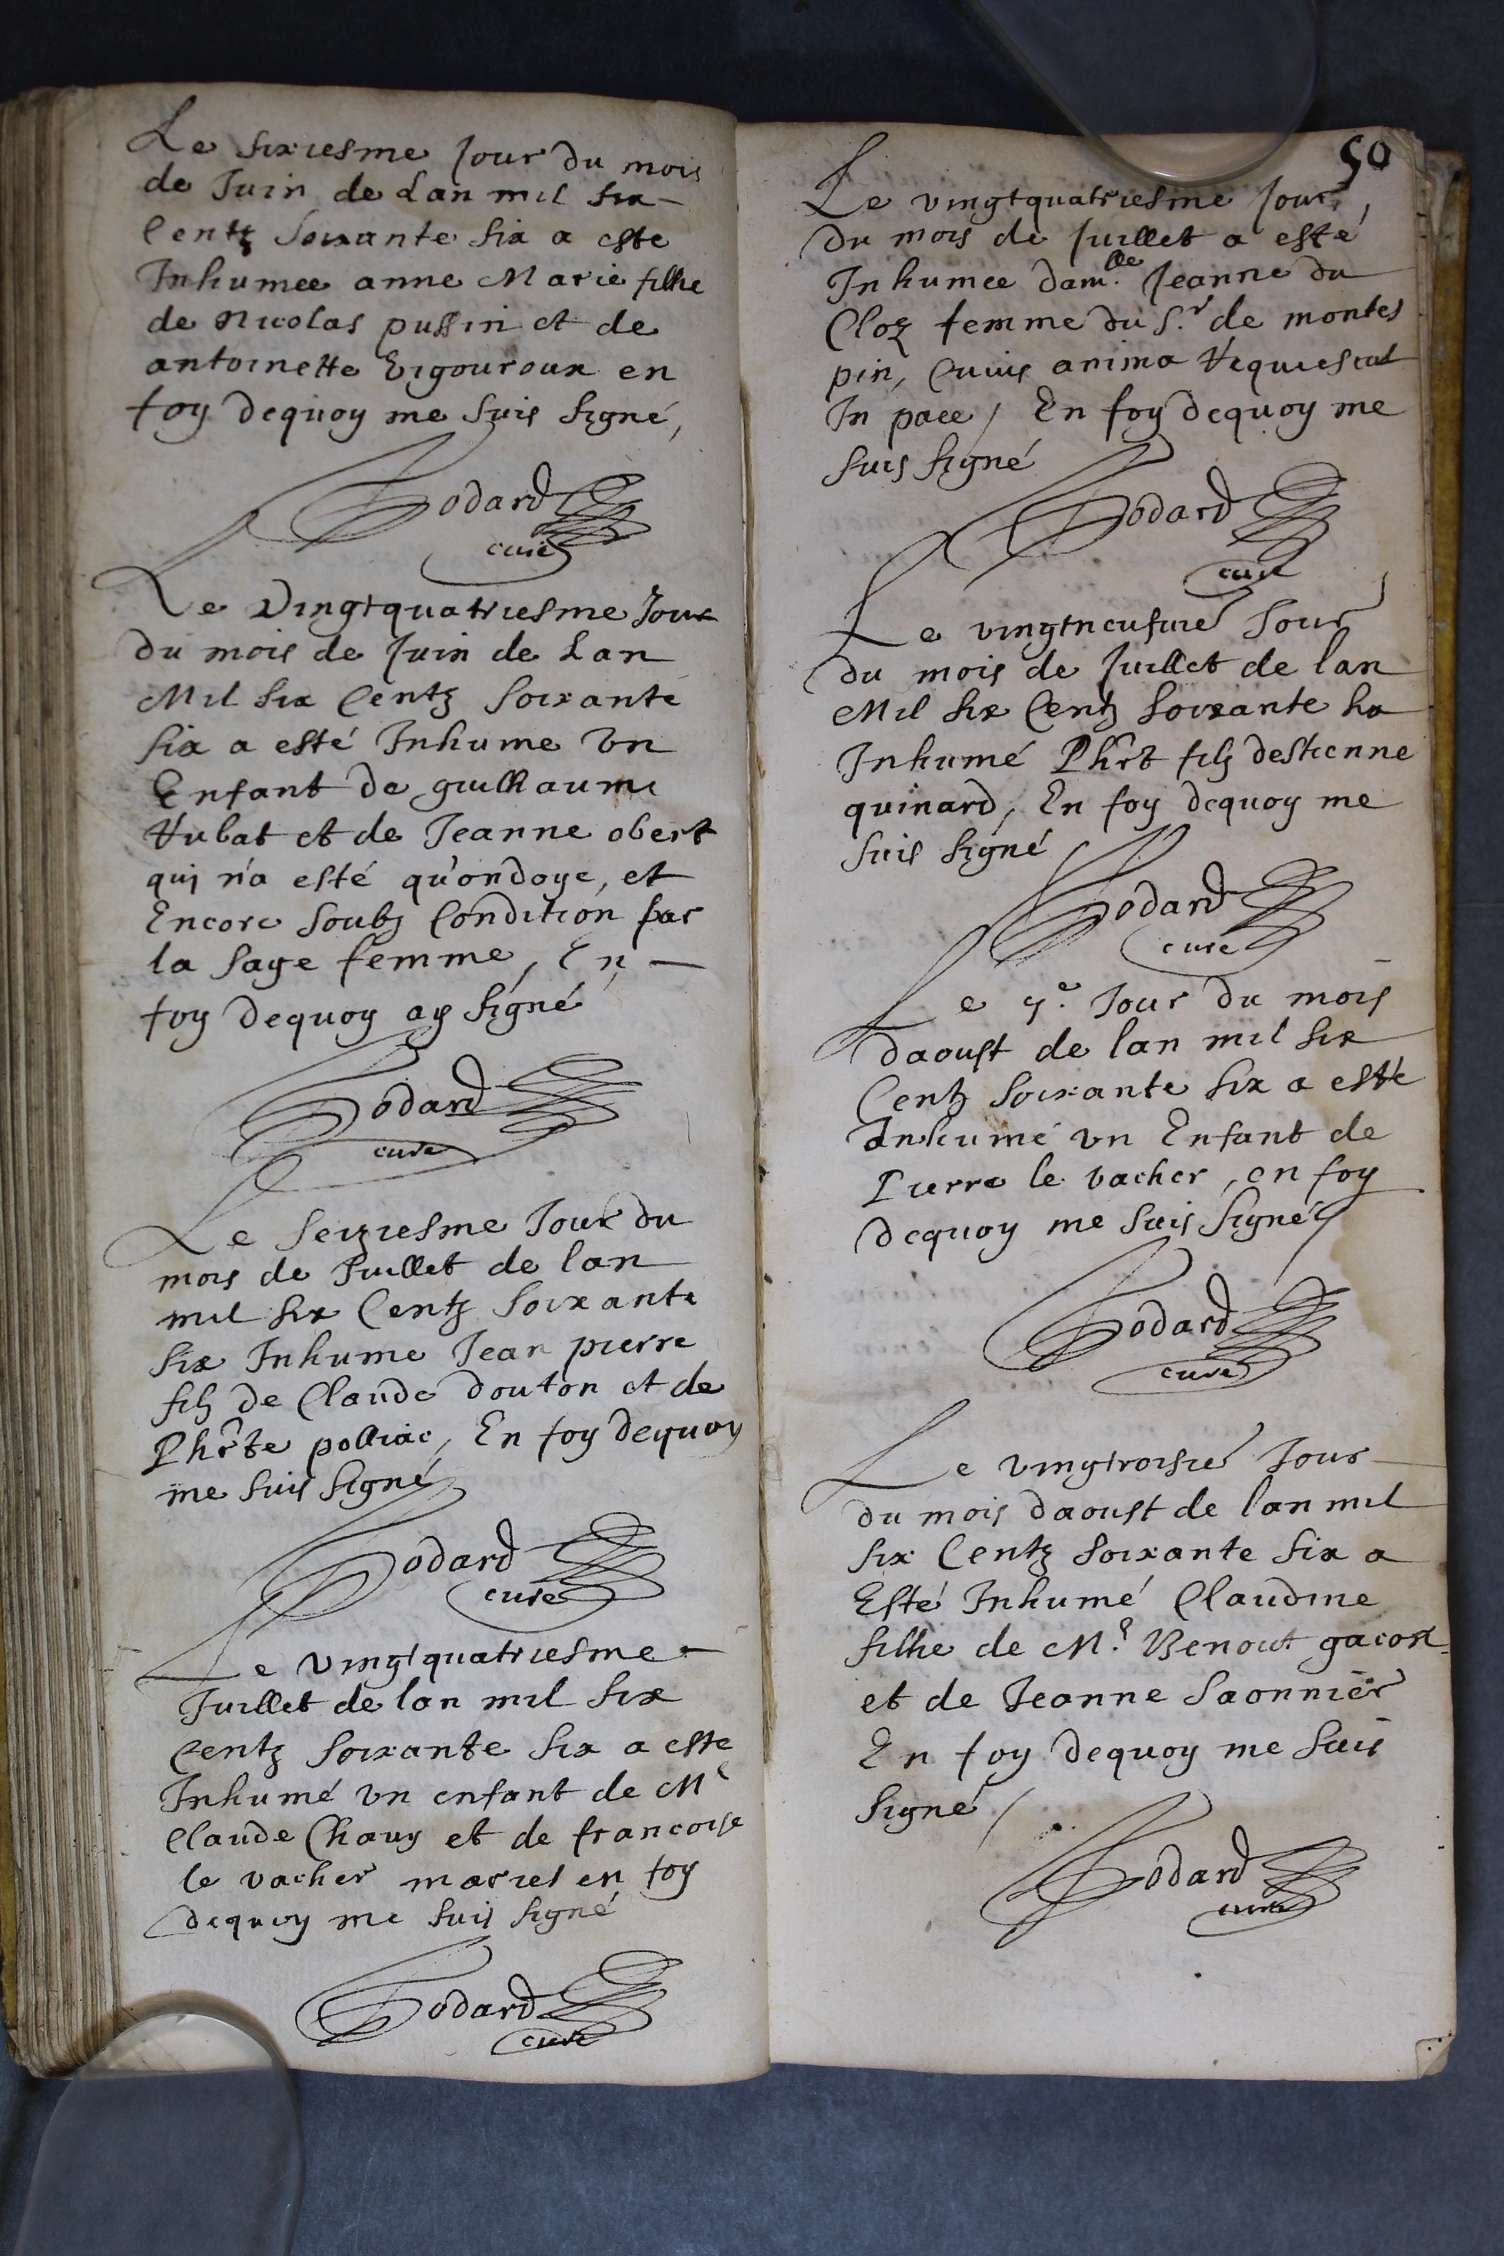 Le sixiesme Jour du mois
de Juin de Lan mil six
Centz Soixante Six a este
Inhumee anne Marie filhe
de Nicolas pussin et de
antoinette Vigouroux en
foy dequoy me Suis Signé,
Godard
curé
Le Vingtquatriesme Jour
du mois de Juin de Lan
Mil six Centz Soixante
Six a esté Inhume Un
Enfant de guillaume
Vubat et de Jeanne obert
qui n'a esté qu'ondoye, et
Encore Soubz Condition par
la Sage femme, En
foy dequoy ay Signé
Godard
curé
Le Seiziesme Jour du
mois de Juillet de lan
mil six Centz Soixante
Six Inhume Jean pierre
filz de Claude douton et de
Phrte polliac, En foy dequoy
me Suis Signé
Godard
curé
Le Vingtquatriesme
Juillet de lan mil Six
Centz Soixante Six a este
Inhumé Un enfant de Me
Claude Chauy et de francoise
le vacher maries en foy
dequoy me suis Signé
Godard
curé
50
Le vingtquatriesme Jour,
du mois de Juillet a esté
Inhumee damlle Jeanne du
Cloz femme du Sr de montes
pin, Cuius anima requiescat
In pace, En foy dequoy me
suis Signé
Godard
curé
Le vingtneufvie Jour
du mois de Juillet de lan
Mil Six Centz Soixante
Inhumé Phrt filz destienne
quinard, En foy dequoy me
suis Signé
Godard
curé
Le Jour du mois
daoust de lan mil six
Centz Soixante Six a esté
Inhumé vn Enfant de
Pierre le vacher, en foy
dequoy me Suis Signé
Godard
curé
Le Vingtroisie Jour
du mois daoust de lan mil
six Centz Soixante Six a
Esté Inhumé Claudine
filhe de Me Benoit gacon
et de Jeanne Saonnier
En foy dequoy me Suis
Signé
Godard
curé